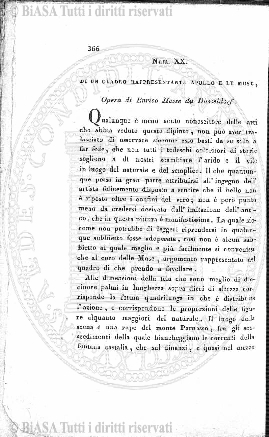 BiASA Tutti i diritti riservati
366
Num. XX.
DI UN QUADRO RAPPRESENTANTE APOLLO E LE MUSE,
Opera di Enrico Hesse da Dusseldorf.
Qualunque è meno sciito conoscitore delle arti
che abbia veduto questo dipinto, non può aver tra-
lasciato di osservare siccome esso basti da se solo a
far fede, che non tutti i tedeschi cultori di storie
sogliono a dì nostri scambiare l'arido e il vile
in luogo del naturale e del semplice. Il che quantun-
que possa in gran parte attribuirsi all'ingegno dell'
artista finissimo disposto a sentire che il bello non
è riposto oltre i confini del vero; non è però punto
meno da credersi derivato dall'imitazione dell'anti-
co, che in questa pittura è manifestissima. La quale sic-
come non potrebbe di leggeri riprendersi in qualun-
que subbietto fosse adoperata, così non è alcun sub-
bietto al quale meglio e più facilmente si convenga
che al coro delle Muse, argomento rappresentato nel
quadro di che prendo a favellare.
Alle dimensioni della tela che sono meglio di di-
ciotto palmi in lunghezza sopra dieci di altezza cor-
risponde la forma quadrilunga in che è distribuita
l'azione, e corrispondono le proporzioni delle figu-
re alquanto maggiori del naturale. Il luogo della
scena è una rupe del monte Parnasso, fra gli sco-
scendimenti della quale biancheggiano le correnti della
fontana castalia, che sul dinanzi, e quasi nel mezzo
BiASA Tutti i diritti riservati